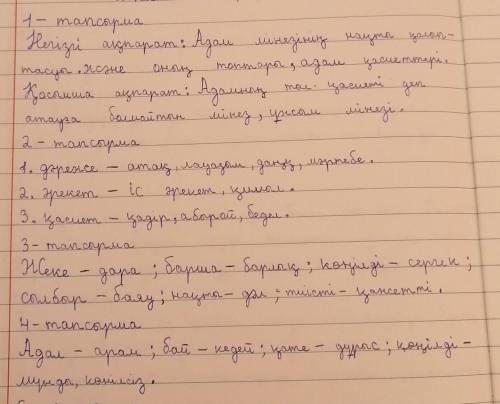 1 - тапсырма
Негізгі ақпарат: Адам мінезінің нақты қалып-
тасуы және оның топтары, адам қасиеттері.
Қосымша ақпарат: Адамның төл қасиеті деп
атауға болмайтын мінез, ұнсым мінезі.
2 - тапсырма
1. дәреже - атақ, лауазым, даңқ, мәртебе.
2. әрекет - іс әрекет, қимыл.
3. қасиет - қадір, абырой, бедел.
3 - тапсырма
Жеке - дара ; барша - барлық ; көңілді - сергек ;
солбыр - баяу ; нақты - дәл ; тиісті -
4 - тапсырма
Адал - арам ; бай - кедей ; қате - дұрыс ; көңілді -
мұңды, көңілсіз.